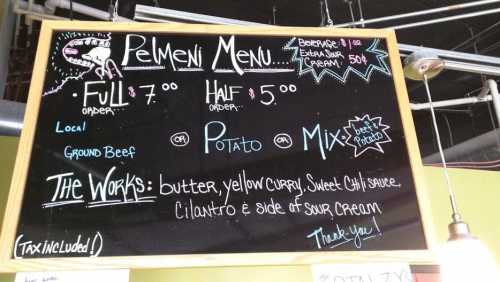 Pelmeni Menu....
Beverage $1.00
Extra Sour
Cream 50¢
• Full $7.00
order...
Half $5.00
order...
Local
Ground Beef
or Potato or Mix:
beef & Potato
The Works: butter, yellow curry, sweet chili sauce,
Cilantro & side of sour cream
(Tax included!)
Thank you!